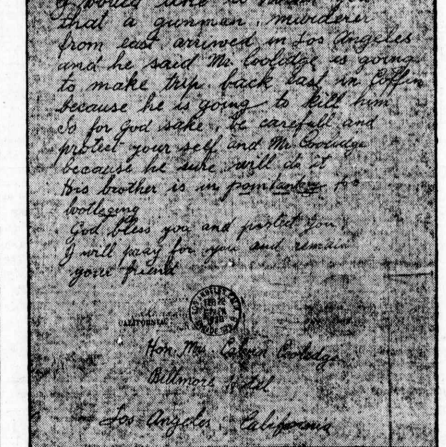 I would like to
that a gunman, murderer
from east arriwed in Los Angeles
and he said Mr. Coolidge is going
to make trip back east in Coffin
because he is going to kill him
So for god sake, be carefull and
protect your self and Mr Coolidge
because he sure will do it
His brother is in for
bootleging
God bless you and protect you,
I will pray for you and remain
your friend
CALIFORNIA
Hon. Mrs. Calvin Coolidge
Biltmore Hotel
Los Angeles, California